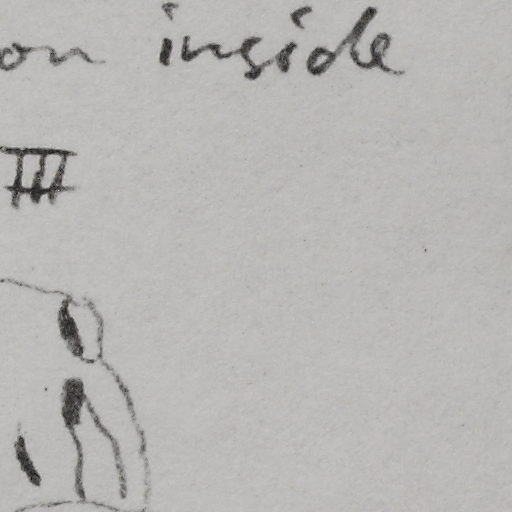 on inside
III